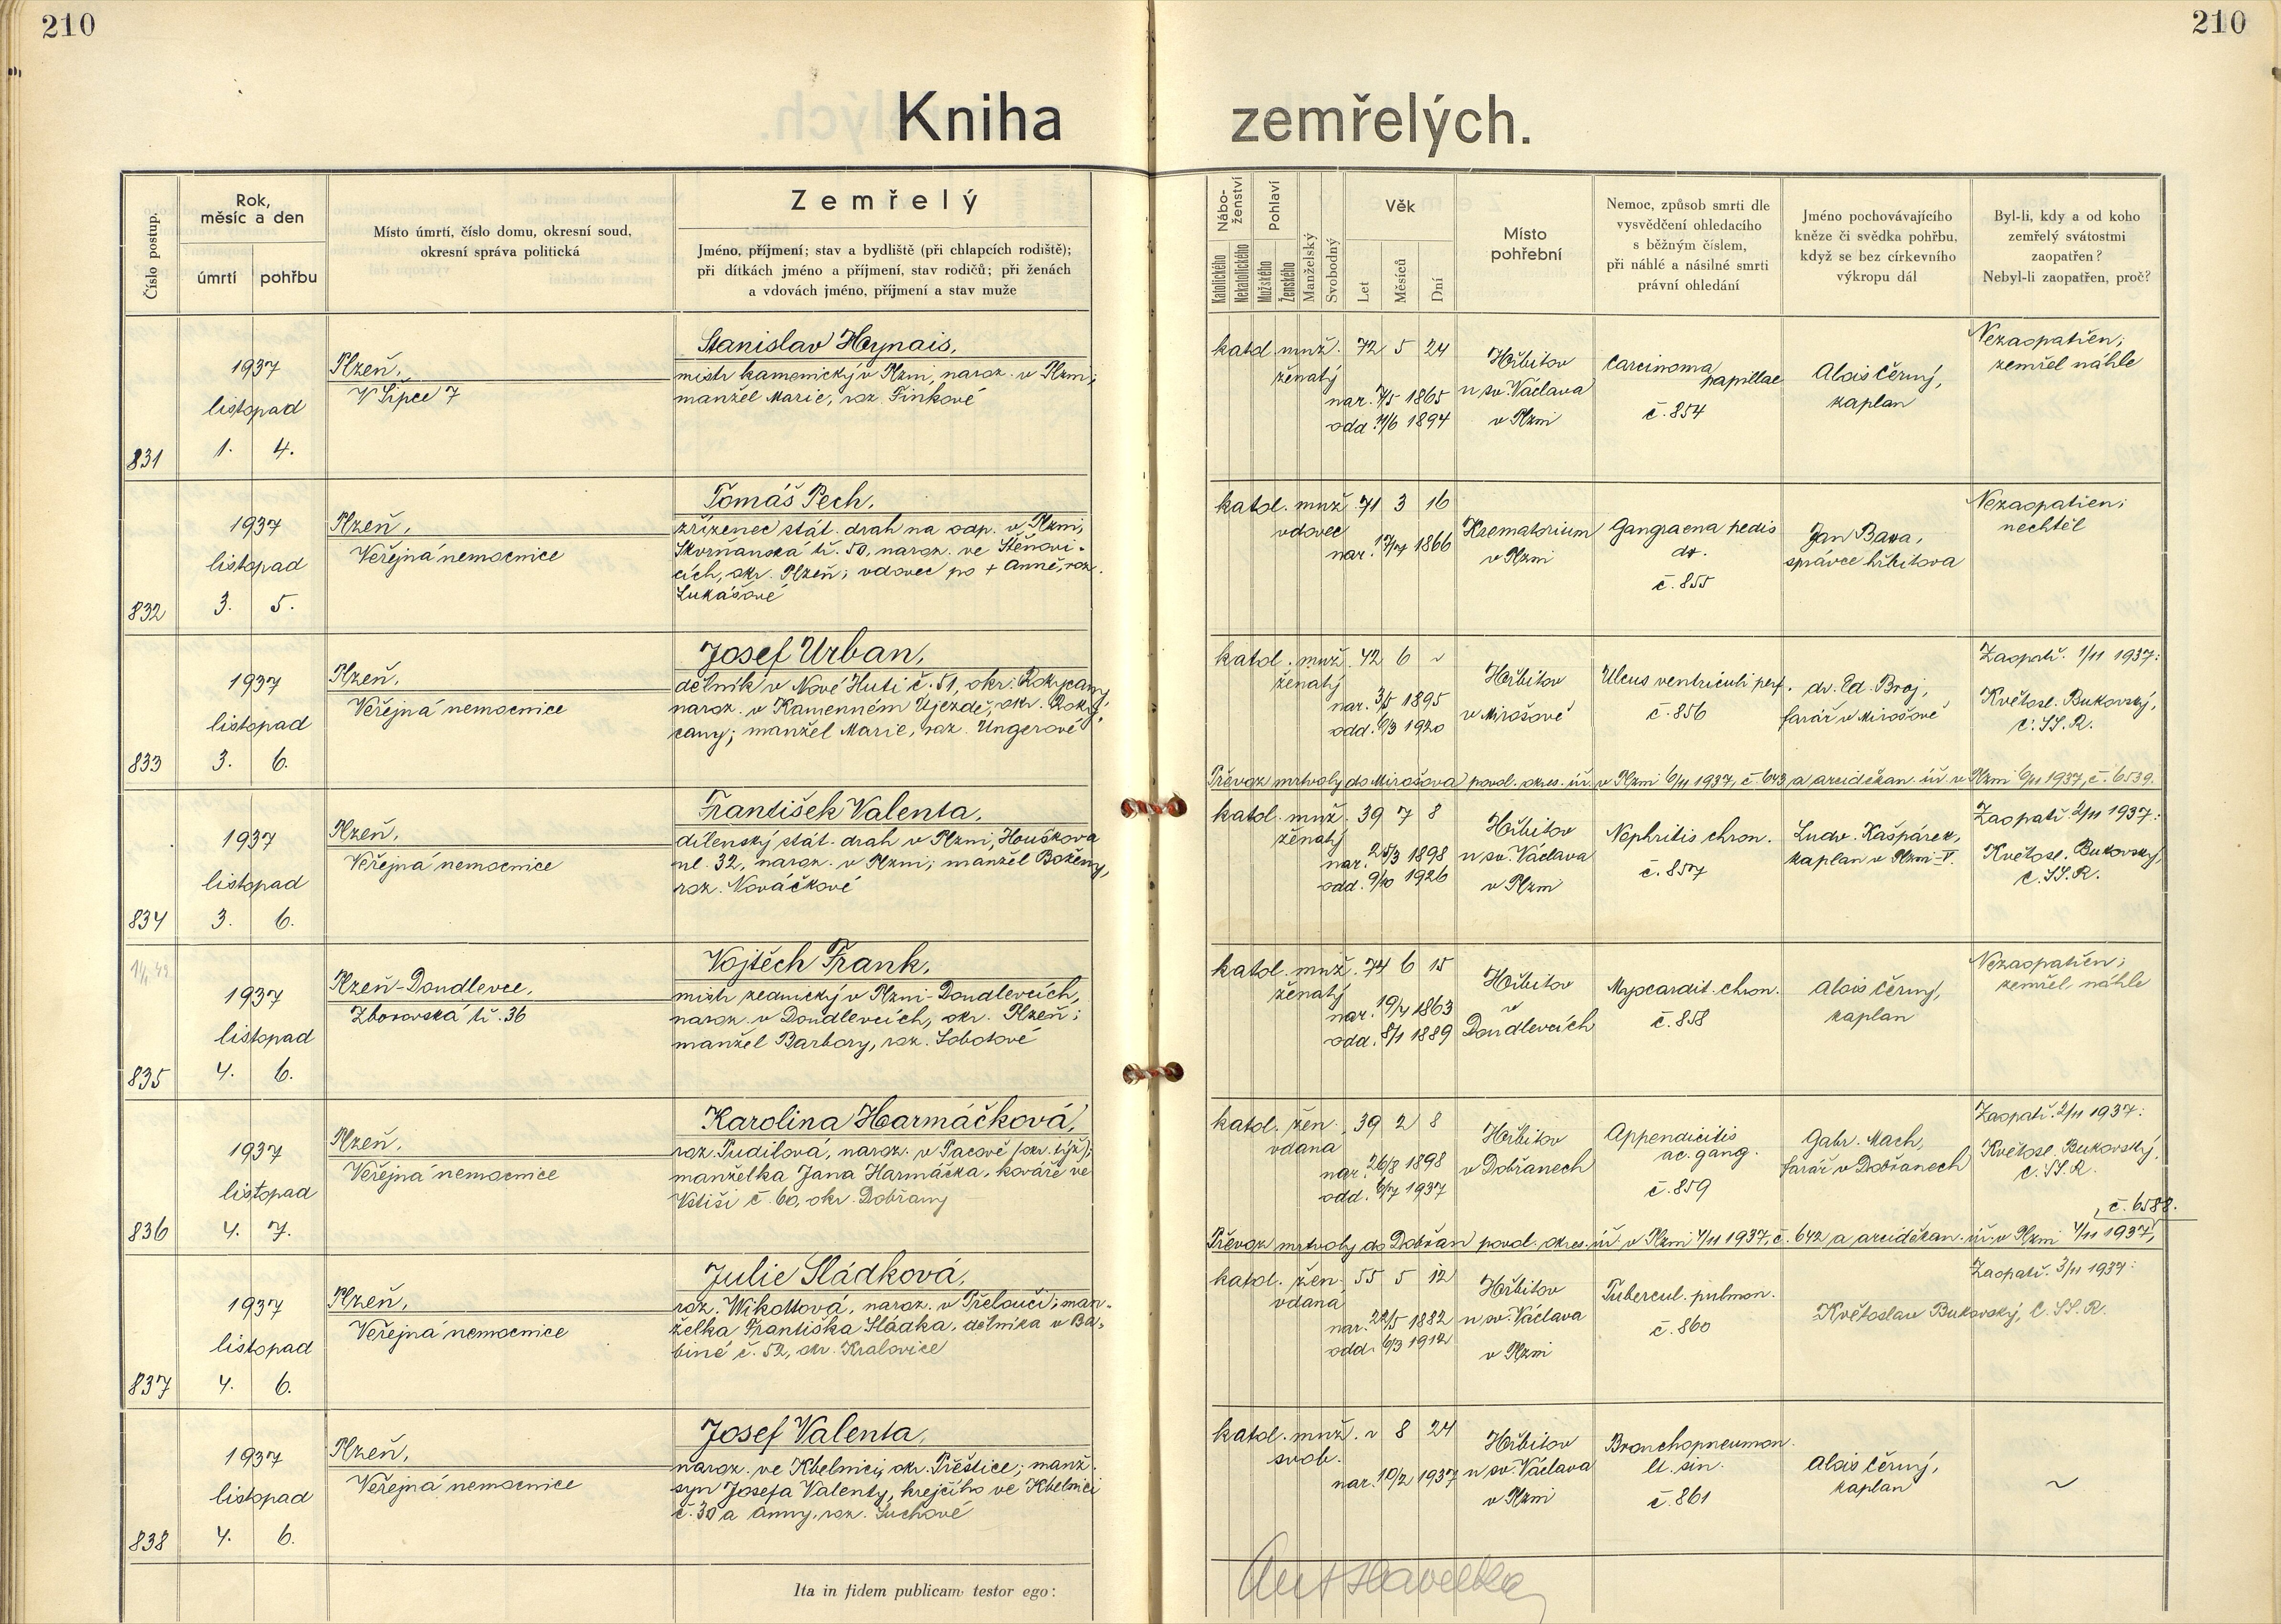 210
210
Kniha zemřelých.
Číslo postup.
Rok,
měsíc a den
úmrtí
pohřbu
Místo úmrtí, číslo domu, okresní soud,
okresní správa politická
Zemřelý
Jméno, příjmení; stav a bydliště (při chlapcích rodiště);
při dítkách jméno a příjmení, stav rodičů; při ženách
a vdovách jméno, příjmení a stav muže
Nábo-
ženství
Katolického
Nekatolického
Pohlaví
Mužského
Ženského
Manželský
Svobodný
Věk
Let
Měsíců
Dní
Místo
pohřební
Nemoc, způsob smrti dle
vysvědčení ohledacího
s běžným číslem,
při náhlé a násilné smrti
právní ohledání
Jméno pochovávajícího
kněze či svědka pohřbu,
když se bez církevního
výkropu dál
Byl-li, kdy a od koho
zemřelý svátostmi
zaopatřen?
Nebyl-li zaopatřen, proč?
831
1937
listopad
1. 4.
Plzeň,
V Šipce 7
Stanislav Hynais,
mistr kamenický v Plzni, naroz. v Plzni;
manžel Marie, roz. Finkové
katol. muž. 72 5 24
ženatý
nar. 7/5 1865
odd. 11/6 1894
Hřbitov
u sv. Václava
v Plzni
Carcinoma
papillae
č. 854
Alois Černý,
kaplan
Nezaopatřen;
zemřel náhle
832
1937
listopad
3. 5.
Plzeň,
Veřejná nemocnice
Tomáš Pech,
zřízenec stát. drah na odp. v Plzni,
Skvrňanská tř. 50, naroz. ve Štěnovi-
cích, okr. Plzeň; vdovec po + Anně, roz.
Lukášové
katol. muž 71 3 16
vdovec
nar. 17/7 1866
Krematorium
v Plzni
Gangraena pedis
dx.
č. 855
Jan Bawa,
správce hřbitova
Nezaopatřen;
nechtěl
833
1937
listopad
3. 6.
Plzeň,
Veřejná nemocnice
Josef Urban,
dělník v Nové Huti č. 51, okr. Rokycany,
naroz. v Kamenném Újezdě, okr. Roky-
cany; manžel Marie, roz. Ungerové
katol. muž. 42 6 ~
ženatý
nar. 3/5 1895
odd. 6/3 1920
Hřbitov
v Mirošově
Ulcus ventriculi perf.
č. 856
dr. Ed. Broj,
farář v Mirošově
Zaopatř. 1/11 1937:
Květosl. Bukovský,
C. SS. R.
Převoz mrtvoly do Mirošova povol. okres. úř. v Plzni 6/11 1937, č. 643 a arciděkan. úř. v Plzni 6/11 1937, č. 6539.
834
1937
listopad
3. 6.
Plzeň,
Veřejná nemocnice
František Valenta,
dílenský stát. drah v Plzni, Houškova
ul. 32, naroz. v Plzni; manžel Boženy,
roz. Nováčkové
katol. muž. 39 7 8
ženatý
nar. 25/3 1898
odd. 9/10 1926
Hřbitov
u sv. Václava
v Plzni
Nephritis chron.
č. 857
Ludv. Kašpárek,
kaplan v Plzni-V.
Zaopatř. 2/11 1937:
Květosl. Bukovský,
C. SS. R.
835
1937
listopad
4. 6.
Plzeň-Doudlevce,
Zborovská tř. 36
Vojtěch Frank,
mistr zednický v Plzni-Doudlevcích,
naroz. v Doudlevcích, okr. Plzeň;
manžel Barbory, roz. Sobotové
katol. muž. 74 6 15
ženatý
nar. 19/4 1863
odd. 8/1 1889
Hřbitov
v
Doudlevcích
Myocardit. chron.
č. 858
Alois Černý,
kaplan
Nezaopatřen;
zemřel náhle
836
1937
listopad
4. 7.
Plzeň,
Veřejná nemocnice
Karolina Harmáčková,
roz. Pudilová, naroz. v Pacově (okr. týž);
manželka Jana Harmáčka, kováře ve
Vstiši č. 60, okr. Dobřany
katol. žen. 39 2 8
vdaná
nar. 26/8 1898
odd. 6/7 1937
Hřbitov
v Dobřanech
Appendicitis
ac. gang.
č. 859
Gabr. Mach,
farář v Dobřanech
Zaopatř. 2/11 1937:
Květosl. Bukovský,
C. SS. R.
Převoz mrtvoly do Dobřan povol. okres. úř. v Plzni 4/11 1937, č. 642 a arciděkan. úř. v Plzni 4/11 1937,
č. 6588.
837
1937
listopad
4. 6.
Plzeň,
Veřejná nemocnice
Julie Sládková,
roz. Wikottová, naroz. v Přelouči; man-
želka Františka Sládka, dělníka v Ba-
bině č. 52, okr. Kralovice
katol. žen. 55 5 12
vdaná
nar. 22/5 1882
odd. 6/3 1912
Hřbitov
u sv. Václava
v Plzni
Tubercul. pulmon.
č. 860
Zaopatř. 3/11 1937:
Květoslav Bukovský, C. SS. R.
838
1937
listopad
4. 6.
Plzeň,
Veřejná nemocnice
Josef Valenta,
naroz. ve Kbelnici, okr. Přeštice; manž.
syn Josefa Valenty, krejčího ve Kbelnici
č. 30 a Anny, roz. Suchové
katol. muž. ~ 8 24
svob.
nar. 10/2 1937
Hřbitov
u sv. Václava
v Plzni
Bronchopneumon.
lt. sin.
č. 861
Alois Černý,
kaplan
~
Ita in fidem publicam testor ego: